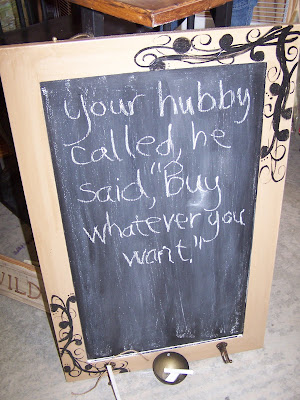 your hubby
called, he
said, "Buy
whatever you
want."
WILD